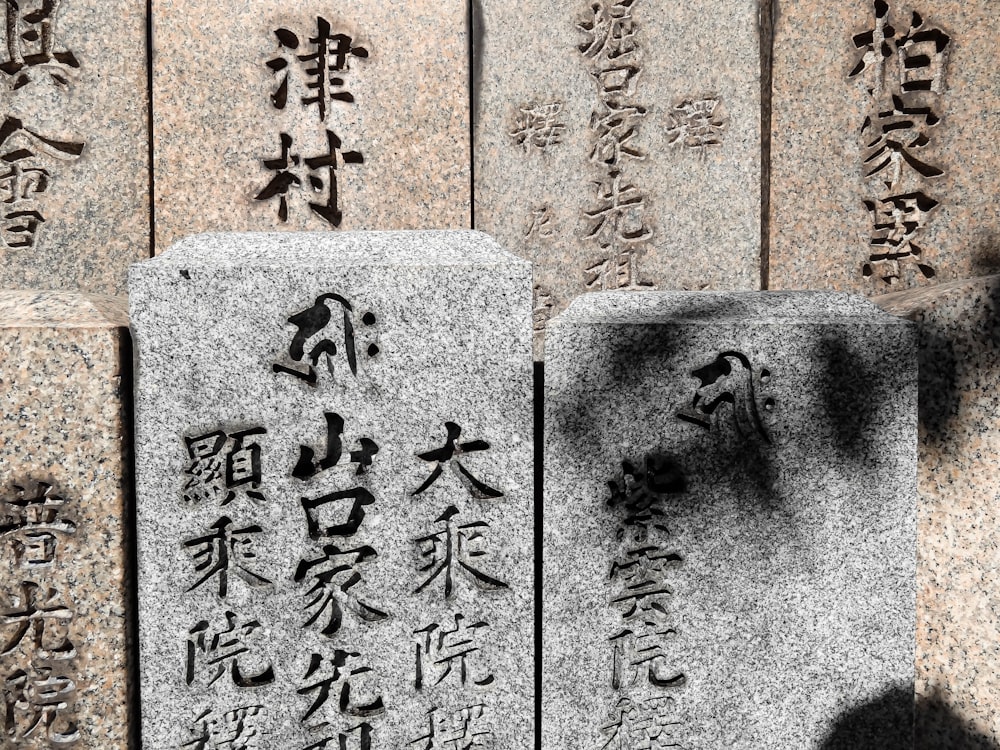 柏家累
堀口家先祖
釋
釋尼
津村
具會
大乘院釋
山口家先祖
顯乘院釋
紫雲院釋
光院